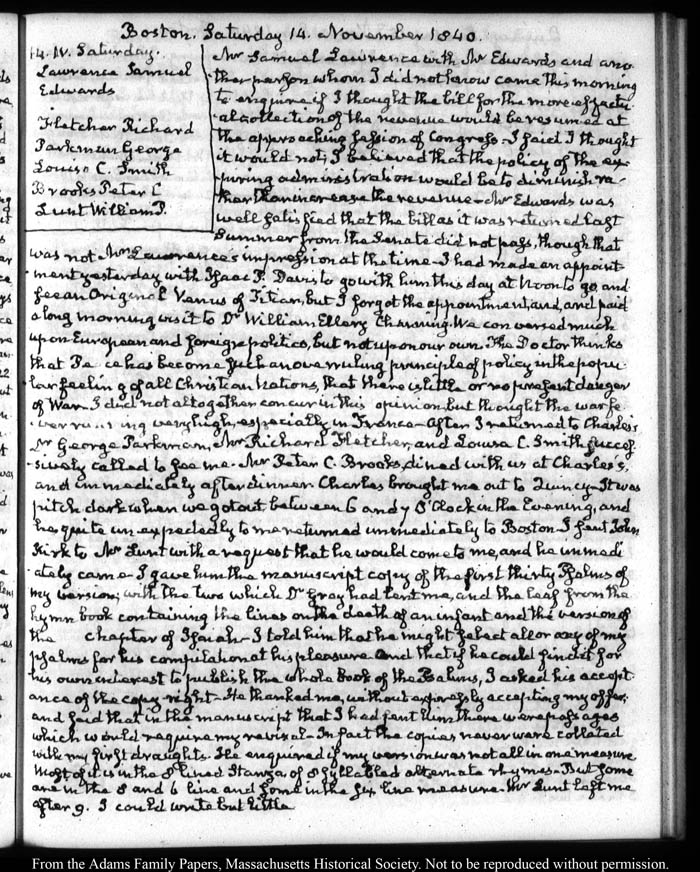 Boston. Saturday 14. November 1840.
14. IV. Saturday.
Lawrence Samuel
Edwards
Fletcher Richard
Parkman George
Louisa C. Smith
Brooks Peter C
Lunt William P.
Mr Samuel Lawrence with Mr Edwards and ano-
ther person whom I did not know came this morning
to enquire if I thought the bill for the more effectu-
al collection of the revenue would be resumed at
the approaching session of Congress. I said I thought
it would not; I believed that the policy of the ex-
piring administration would be to diminish ra-
ther than increase the revenue. Mr Edwards was
well satisfied that the bill as it was returned last
Summer from the Senate did not pass, though that
was not Mr Lawrence's impression at the time. I had made an appoint-
ment yesterday with Isaac P. Davis to go with him this day at Noon to go and
see an Original Venus of Titian, but I forgot the appointment, and, and paid
a long morning visit to Dr William Ellery Channing. We conversed much
upon European and foreign politics, but not upon our own. The Doctor thinks
that Peace has become such an overruling principle of policy in the popu-
lar feeling of all Christian Nations, that there is little or no present danger
of War. I did not altogether concur in this opinion but thought the war fe-
ver running very high, especially in France. After I returned to Charles's
Dr George Parkman, Mr Richard Fletcher, and Louisa C. Smith succes-
sively called to see me. Mr Peter C. Brooks, dined with us at Charles's,
and immediately after dinner Charles brought me out to Quincy. It was
pitch dark when we got out between 6 and 7 O'Clock in the Evening, and
he quite unexpectedly to me returned immediately to Boston. I sent John
Kirk to Mr Lunt with a request that he would come to me, and he immedi-
ately came. I gave him the manuscript copy of the first thirty Psalms of
my version; with the two which Dr Gray had lent me, and the leaf from the
hymn book containing the lines on the death of an infant and the version of
the chapter of Isaiah. I told him that he might select all or any of my
psalms for his compilation at his pleasure. And that if he could find it for
his own interest to publish the whole Book of the Psalms, I asked his accept-
ance of the copy right. He thanked me, without expressly accepting my offer;
and said that in the manuscript that I had sent him there were passages
which would require my revisal. In fact the copies never were collated
with my first draughts. He enquired if my version was not all in one measure
Most of it is in the 8 lined Stanza, of 8 syllabled alternate rhymes. But some
are in the 8 and 6 line and some in the six line measure. Mr Lunt left me
after 9. I could write but little
From the Adams Family Papers, Massachusetts Historical Society. Not to be reproduced without permission.